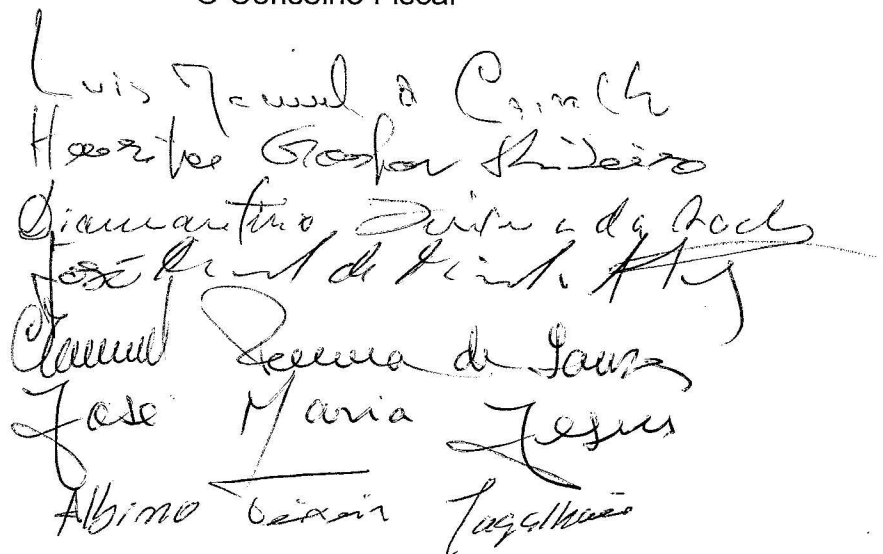 O Conselho Fiscal
Luis Manuel
Henrique Gaspar
Diamantino da Rocha
José de
Manuel Pereira de Sousa
José Maria Jesus
Albino Teixeira Magalhães